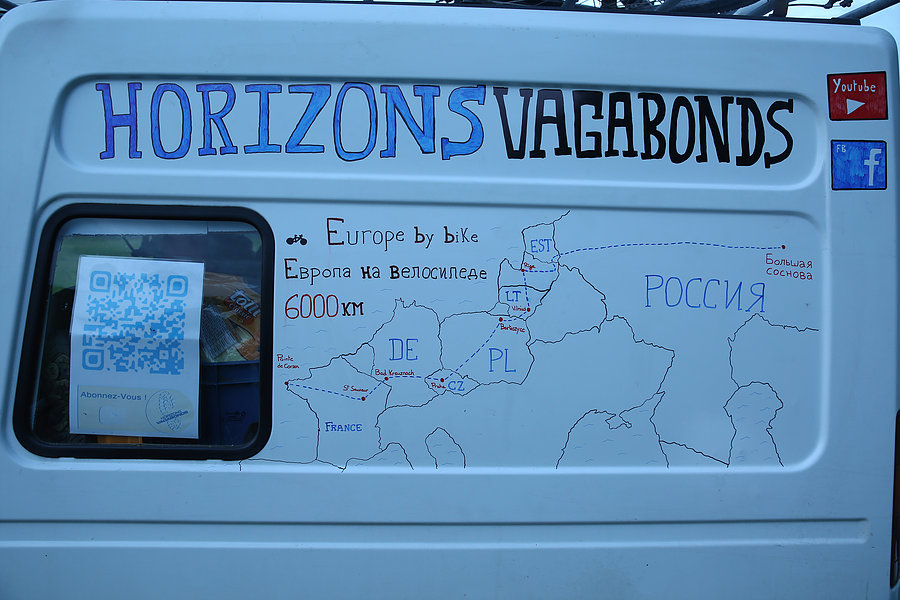 HORIZONS VAGABONDS
Youtube
FB
f
Europe by biKe
Европа на велосипеде
6000 км
EST
Большая
соснова
РОССИЯ
Riga
LT
Vilnius
Bartoszyce
DE
PL
Pointe
de Corsen
Bad Kreuznach
Praha
CZ
St Sauveur
FRANCE
Abonnez-Vous !